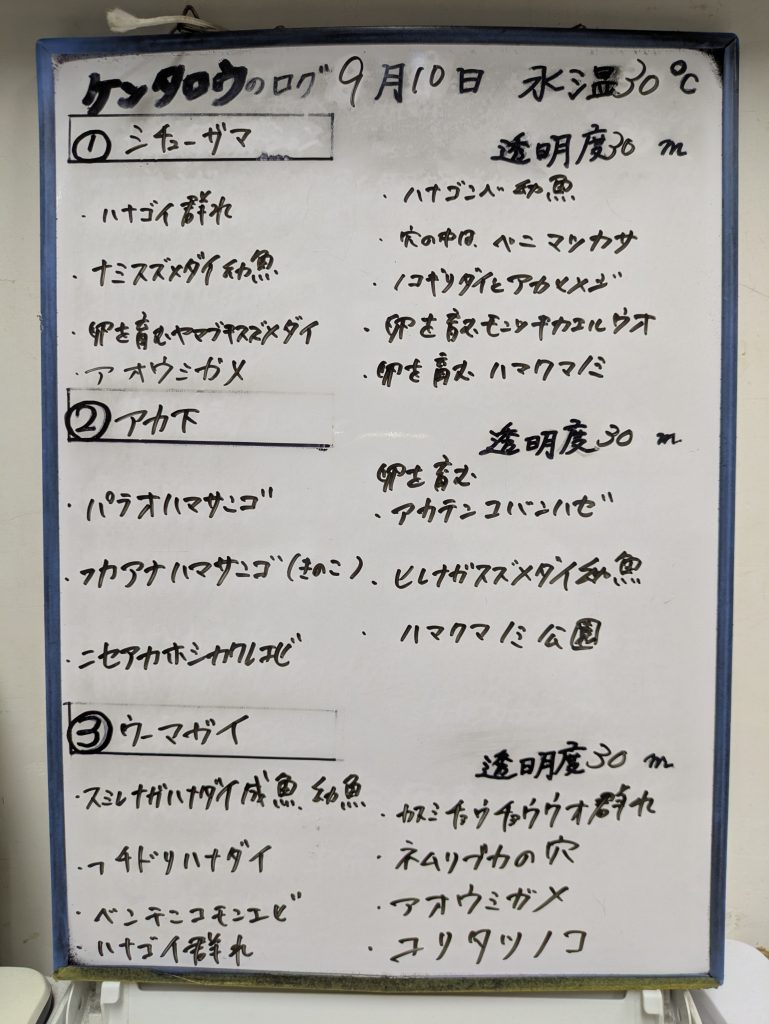 ケンタロウのログ 9月10日 水温30℃
① シチューザマ
透明度30 m
・ハナゴイ群れ
・ナミスズメダイ幼魚
・卵を育むヤマブキスズメダイ
・アオウミガメ
・ハナゴンベ 幼魚
・穴の中は ベニマツカサ
・ノコギリダイとアカヒメジ
・卵を育むモンツキカエルウオ
・卵を育む ハマクマノミ
② アカ下
透明度30 m
・パラオハマサンゴ
・フカアナハマサンゴ(きのこ)
・ニセアカホシカクレエビ
卵を育む
・アカテンコバンハゼ
・ヒレナガスズメダイ幼魚
・ハマクマノミ公園
③ ウーマガイ
透明度30 m
・スミレナガハナダイ成魚 幼魚
・フチドリハナダイ
・ベンテンコモンエビ
・ハナゴイ群れ
・カスミチョウチョウウオ群れ
・ネムリブカの穴
・アオウミガメ
・ユリタツノコ